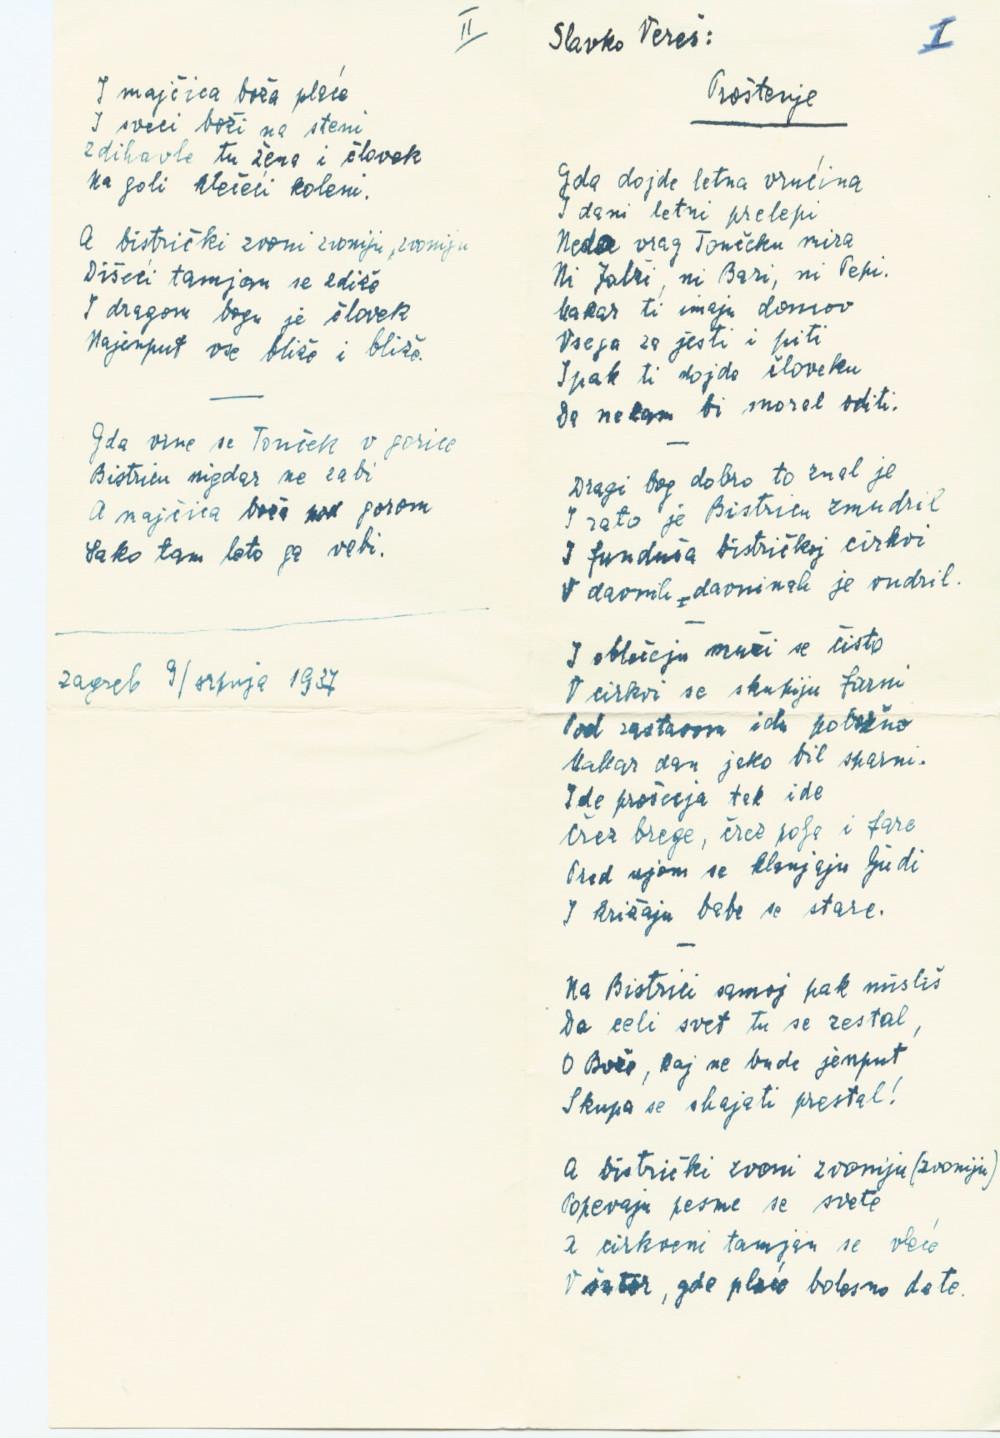 I
Slavko Vereš:
Proštenje
Gda dojde letna vrućina
I dani letni prelepi
Neda vrag Tončeku mira
Ni Jalži, ni Bari, ni Pepi.
Makar ti imaju domov
Vsega za jesti i piti
Ipak ti dojde človeku
Da nekam bi moral oditi.
—
Dragi bog dobro to znal je
I zato je Bistricu zmudril
I funduša bistričkoj cirkvi
V davnih davninah je vudril.
—
I oblečeju muži se čisto
V cirkvi se skupiju farni
Pod zastavom idu pobožno
Makar dan jako bil sparni.
Ide prošecija tak ide
Črez brege, črez polja i fare
Pred njom se klanjaju ljudi
I križaju babe se stare.
—
Na Bistrici samoj pak misliš
Da celi svet tu se zestal,
O Bože, kaj ne bude jenput
Skupa se shajati prestal!
A bistrički zvoni zvoniju (zvoniju)
Popevaju pesme se svete
I cirkveni tamjan se vleče
V, gde plače bolesno dete.
II
I majčica boža plače
I sveci boži na steni
Zdihavle tu žena i človek
Na goli klečeći koleni.
A bistrički zvoni zvoniju, zvoniju
Dišeći tamjan se zdiže
I dragom bogu je človek
Najenput vse bliže i bliže.
—
Gda vrne se Tonček v gorice
Bistricu nigdar ne zabi
A majčica boža pod gorom
Sako tam leto ga vabi.
Zagreb 9/srpnja 1937